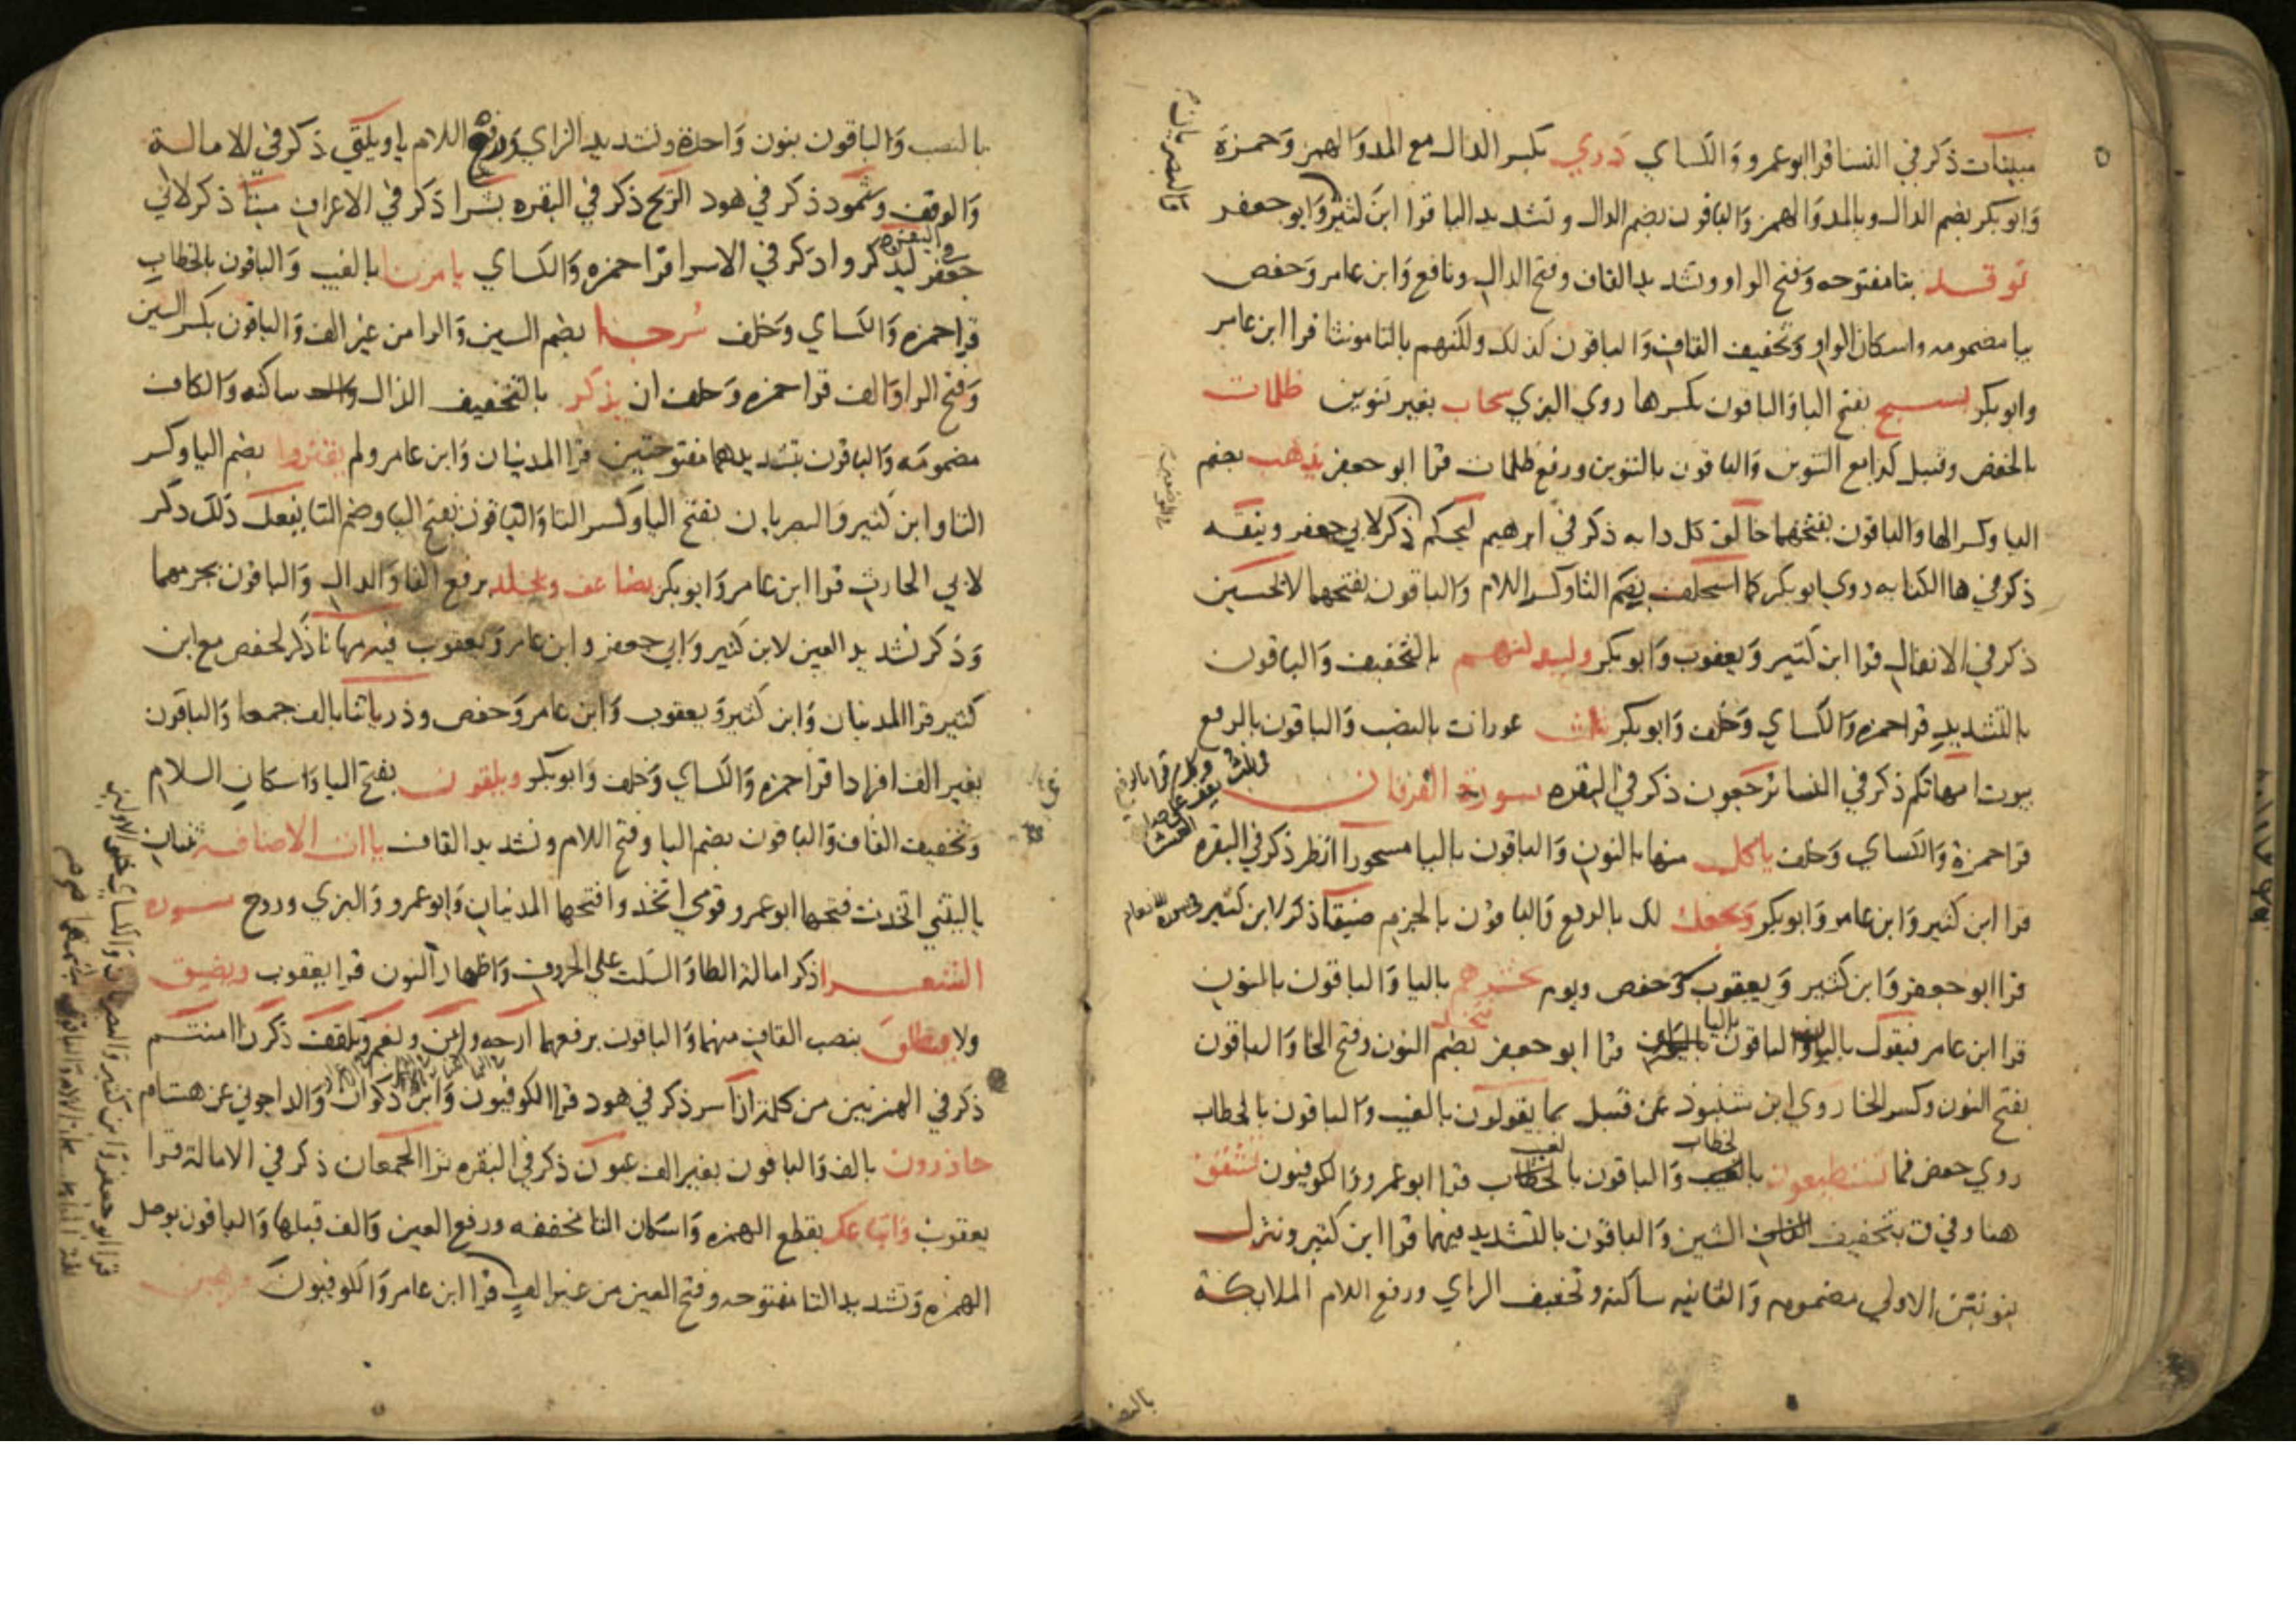 مبينات ذكر في النسا قرا ابو عمرو والكساي دري بكسر الدال مع المد والهمز وحمزة
وابو بكر بضم الدال وبالمد والهمز والباقون بضم الدال وتشديد اليا قرا ابن كثير وابو جعفر
والبصريان
توقد بتا مفتوحه وفتح الواو وتشديد القاف وفتح الدال ونافع وابن عامر وحفص
بيا مضمومه واسكان الواو وتخفيف القاف والباقون كذلك ولكنهم بالتا مونثا قرا ابن عامر
وابو بكر يسبح بفتح البا والباقون بكسرها روي البزي سحاب بغير تنوين ظلمات
بالخفض وقنبل كذا مع التنوين والباقون بالتنوين ورفع ظلمات قرا ابو جعفر يذهب بضم
اليا وكسر الها والباقون بفتحهما خالق كل دابه ذكر في ابرهيم ليحكم ذكر لابي جعفر ويتقه
ذكر في ها الكنايه روي ابو بكر كما استخلف بضم التا وكسر اللام والباقون بفتحهما لا تحسبن
ذكر في الانفال قرا ابن كثير ويعقوب وابو بكر وليبدلنهم بالتخفيف والباقون
بالتشديد قرا حمزه والكساي وخلف وابو بكر ثلث عورات بالنصب والباقون بالرفع
بيوت امهاتكم ذكر في النسا ترجعون ذكر في البقره سورة الفرقان
قرا حمزة والكساي وخلف ياكل منها بالنون والباقون باليا مسحورا انظر ذكر في البقره
قرا ابن كثير وابن عامر وابو بكر ويجعل لك بالرفع والباقون بالجزم ضيقا ذكر لابن كثير
قرا ابو جعفر وابن كثير ويعقوب وحفص ويوم يحشرهم باليا والباقون بالنون
قرا ابن عامر فيقول بالنون والباقون باليا نتخذ قرا ابو جعفر بضم النون وفتح الخا والباقون
بفتح النون وكسر الخا روي ابن شنبوذ عن قنبل بما يقولون بالغيب والباقون بالخطاب
روي حفص فما تستطيعون بالخطاب والباقون بالغيب قرا ابو عمرو والكوفيون تشقق
هنا وفي ق بتخفيف الشين والباقون بالتشديد فيهما قرا ابن كثير وننزل
بنونين الاولي مضمومه والثانيه ساكنه وتخفيف الزاي ورفع اللام الملايكة
بالنصب
بالنصب والباقون بنون واحدة وتشديد الزاي ورفع اللام يا ويلتي ذكر في الامالة
والوقف وثمود ذكر في هود الريح ذكر في البقره بشرا ذكر في الاعراف ميتا ذكر لابي
جعفر في البقره ليذكروا ذكر في الاسرا قرا حمزه والكساي يامرنا بالغيب والباقون بالخطاب
قرا حمزه والكساي وخلف سرجا بضم السين والرا من غير الف والباقون بكسر السين
وفتح الرا والف قرا حمزه وخلف ان يذكر بالتخفيف الذال ساكنه والكاف
مضمومه والباقون بتشديدهما مفتوحتين قرا المدنيان وابن عامر ولم يقتروا بضم اليا وكسر
التا وابن كثير والبصريان بفتح اليا وكسر التا والباقون بفتح اليا وضم التا يفعل ذلك ذكر
لابي الحارث قرا ابن عامر وابو بكر يضاعف ويخلد برفع الفا والدال والباقون بجزمهما
وذكر تشديد العين لابن كثير وابي جعفر وابن عامر ويعقوب فيه مهانا ذكر لحفص مع ابن
كثير قرا المدنيان وابن كثير ويعقوب وابن عامر وحفص وذرياتنا بالف جمعا والباقون
بغير الف افرادا قرا حمزه والكساي وخلف وابو بكر ويلقون بفتح اليا واسكان اللام
وتخفيف القاف والباقون بضم اليا وفتح اللام وتشديد القاف ياات الاضافة ثنتان
ياليتني اتخذت فتحها ابو عمرو وقومي اتخذوا فتحها المدنيان وابو عمرو والبزي وروح سورة
الشعرا ذكر امالة الطا والسكت علي الحروف واظهار النون قرا يعقوب ويضيق
ولا ينطلق بنصب القاف منهما والباقون برفعهما ارجه وابن ونعم وتلقف ذكرن اامنتم
ذكر في الهمزتين من كلمة ان اسر ذكر في هود قرا الكوفيون وابن ذكوان والداجوني عن هشام
حاذرون بالف والباقون بغير الف عيون ذكر في البقره ترا الجمعان ذكر في الامالة قرا
يعقوب واتباعك بقطع الهمزه واسكان التا مخففه ورفع العين والف قبلها والباقون بوصل
الهمزه وتشديد التا مفتوحه وفتح العين من غير الف قرا ابن عامر والكوفيون فرهين
قرا ابو جعفر وابن كثير والبصريان والكساي خلق الاولين